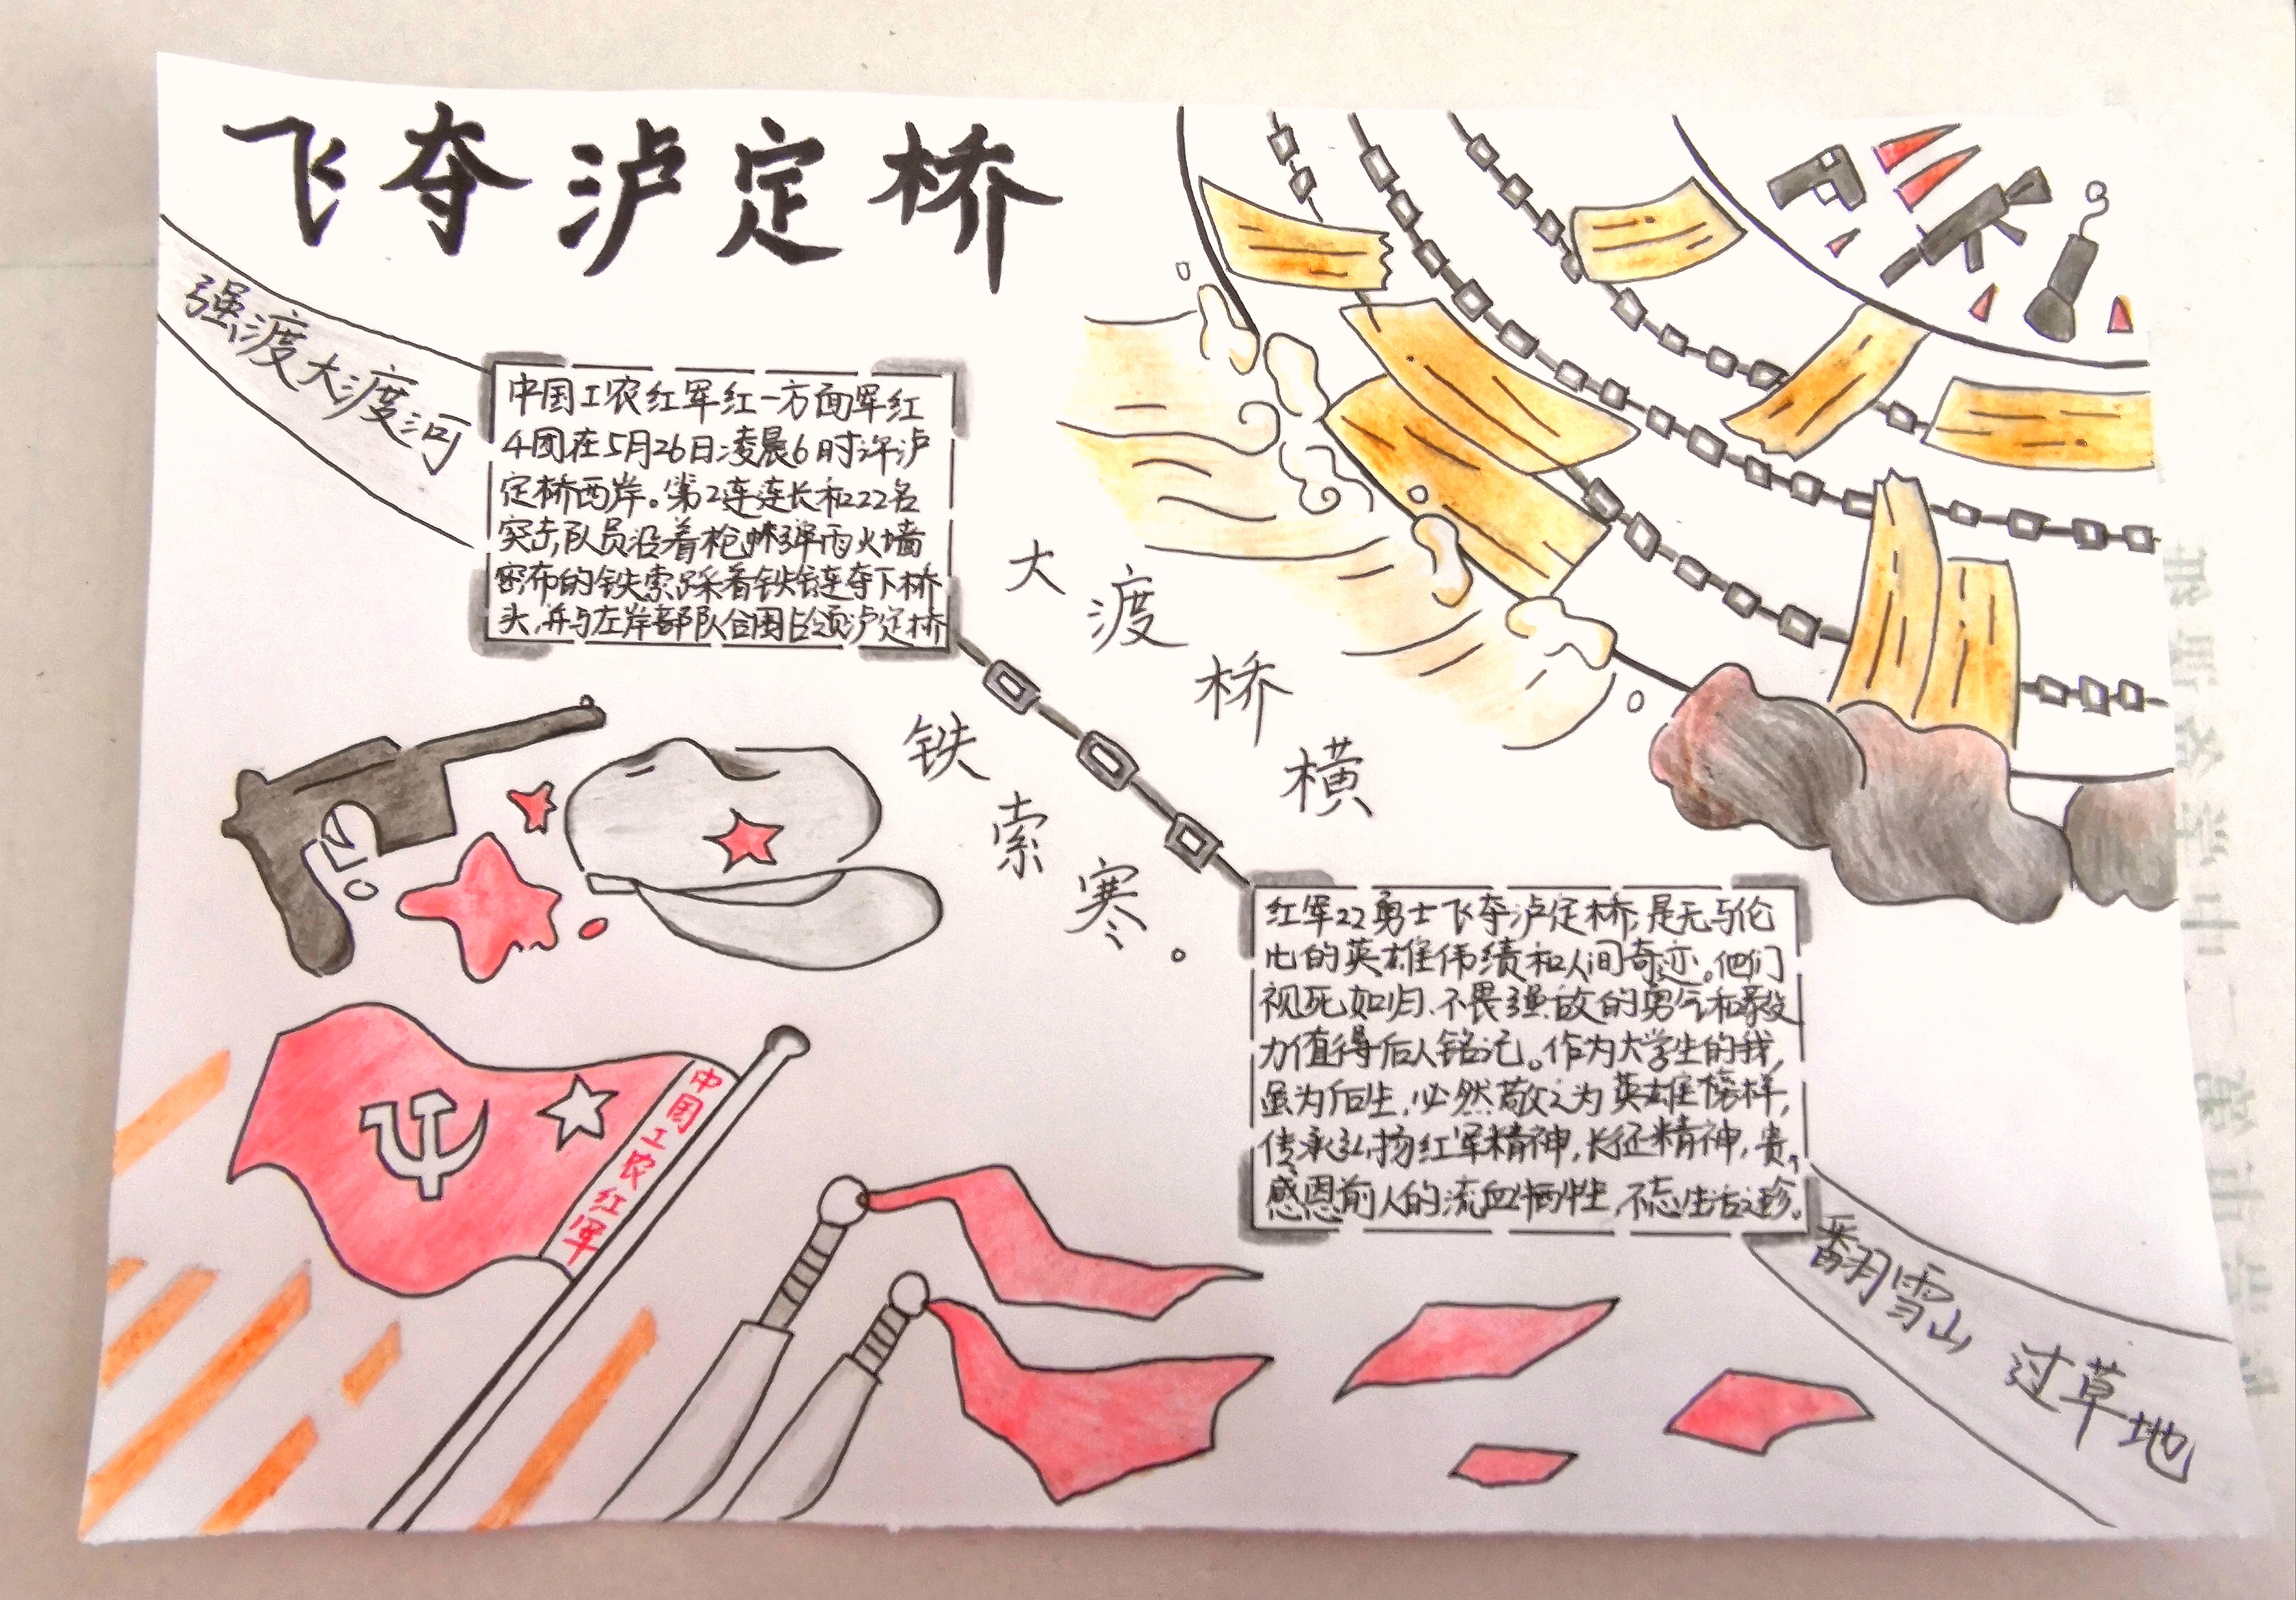 飞夺泸定桥
强渡大渡河
中国工农红军红一方面军红
4团在5月26日凌晨6时许泸
定桥西岸。第2连连长和22名
突击队员沿着枪林弹雨火墙
密布的铁索踩着铁链夺下桥
头,并与左岸部队合围占领泸定桥
大渡桥横
铁索寒。
红军22勇士飞夺泸定桥,是无与伦
比的英雄伟绩和人间奇迹。他们
视死如归、不畏强敌的勇气和毅
力值得后人铭记。作为大学生的我,
虽为后生,必然敬之为英雄榜样,
传承弘扬红军精神,长征精神,贵,
感恩前人的流血牺牲,不忘生活之珍。
中国工农红军
翻雪山 过草地